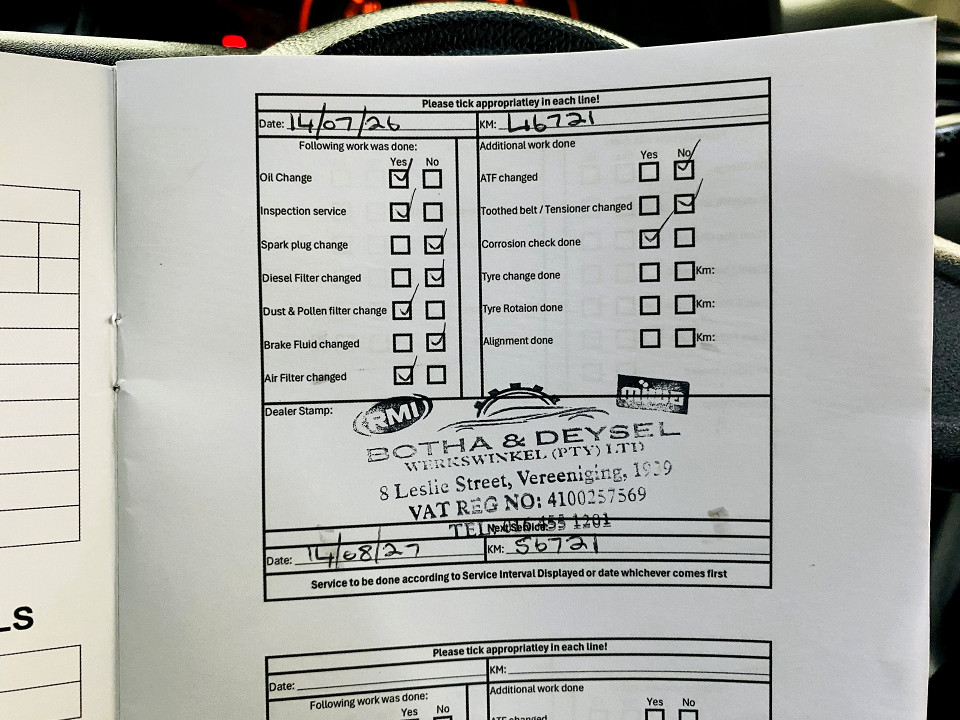 Please tick appropriatley in each line!
Date: 14/07/26 KM: 46721
Following work was done: Additional work done
Yes No Yes No
Oil Change ATF changed
Inspection service Toothed belt / Tensioner changed
Spark plug change Corrosion check done
Diesel Filter changed Tyre change done Km:
Dust & Pollen filter change Tyre Rotaion done Km:
Brake Fluid changed Alignment done Km:
Air Filter changed
Dealer Stamp:
RMI
BOTHA & DEYSEL
WERKSWINKEL (PTY) LTD
8 Leslie Street, Vereeniging, 1939
VAT REG NO: 4100257569
TEL: 016 455 1201
Next Service:
Date: 14/08/27 KM: 56721
Service to be done according to Service Interval Displayed or date whichever comes first
LS
Please tick appropriatley in each line!
Date: KM:
Following work was done: Additional work done
Yes No Yes No
ATF changed